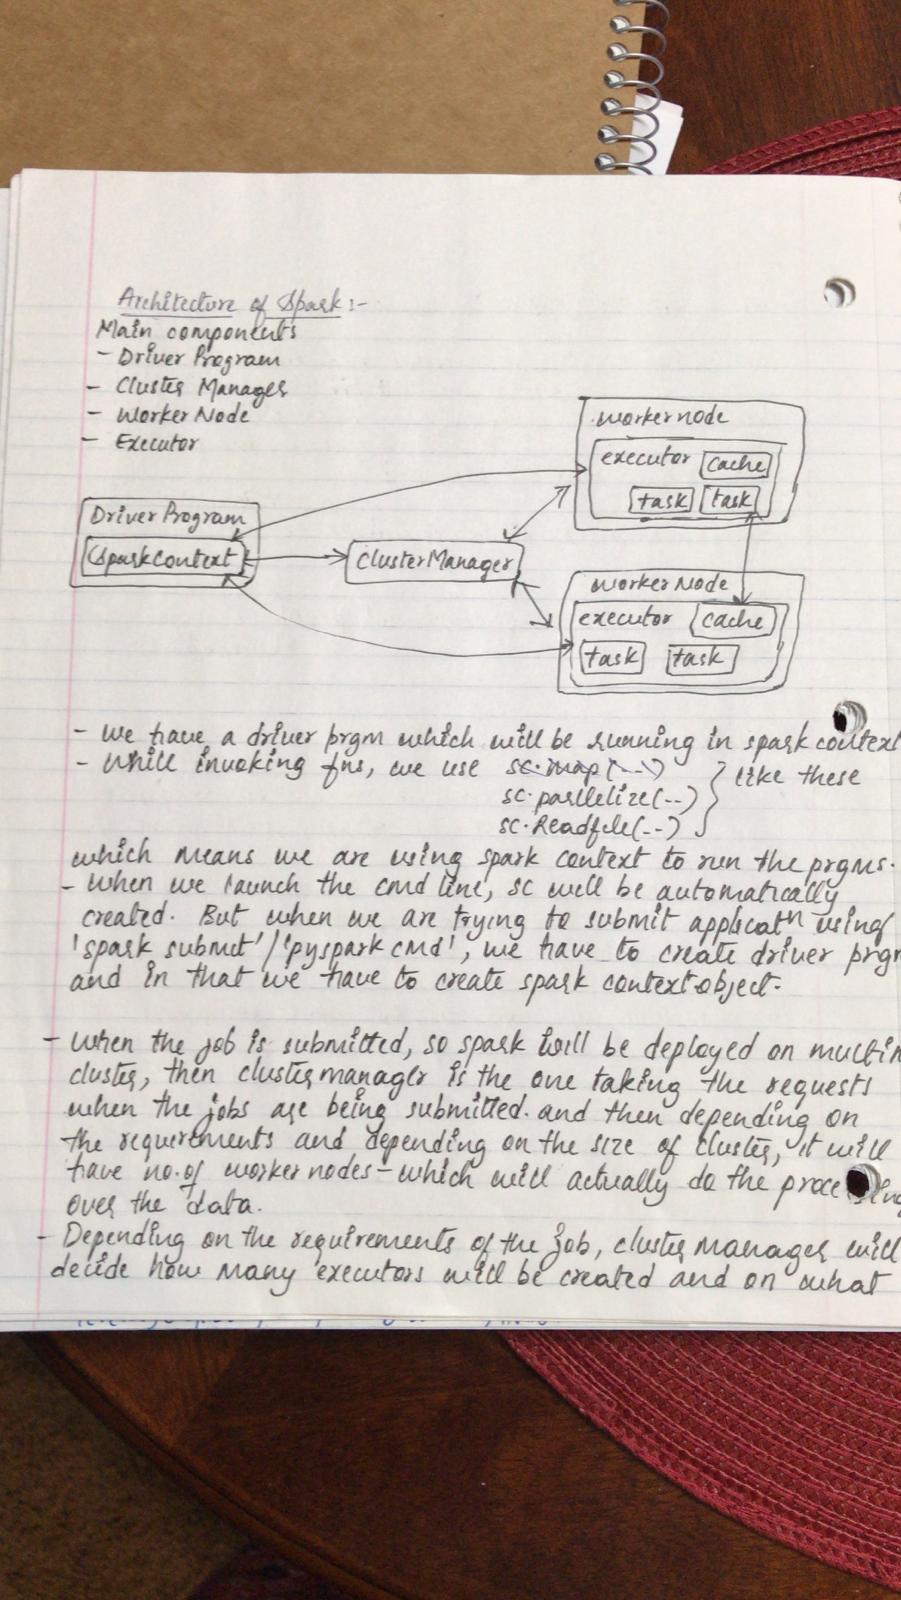 Architecture of Spark :-
Main components
- Driver Program
- Cluster Manager
- Worker Node
- Executor
worker node
executor cache
task task
Driver Program
Spark Context
Cluster Manager
Worker Node
executor cache
task task
- We have a driver prgm which will be running in spark context
- While invoking fns, we use sc.map(--) } like these
sc.parllelize(--)
sc.Readfile(--)
which means we are using spark context to run the prgms.
- When we launch the cmd line, sc will be automatically
created. But when we are trying to submit applicatn using
'spark submit' / 'pyspark cmd', we have to create driver prgm
and in that we have to create spark context object.
- When the job is submitted, so spark will be deployed on
cluster, then cluster manager is the one taking the requests
when the jobs are being submitted. and then depending on
the requirements and depending on the size of cluster, it will
have no. of worker nodes - which will actually do the
over the data.
- Depending on the requirements of the job, cluster manager will
decide how many executors will be created and on what